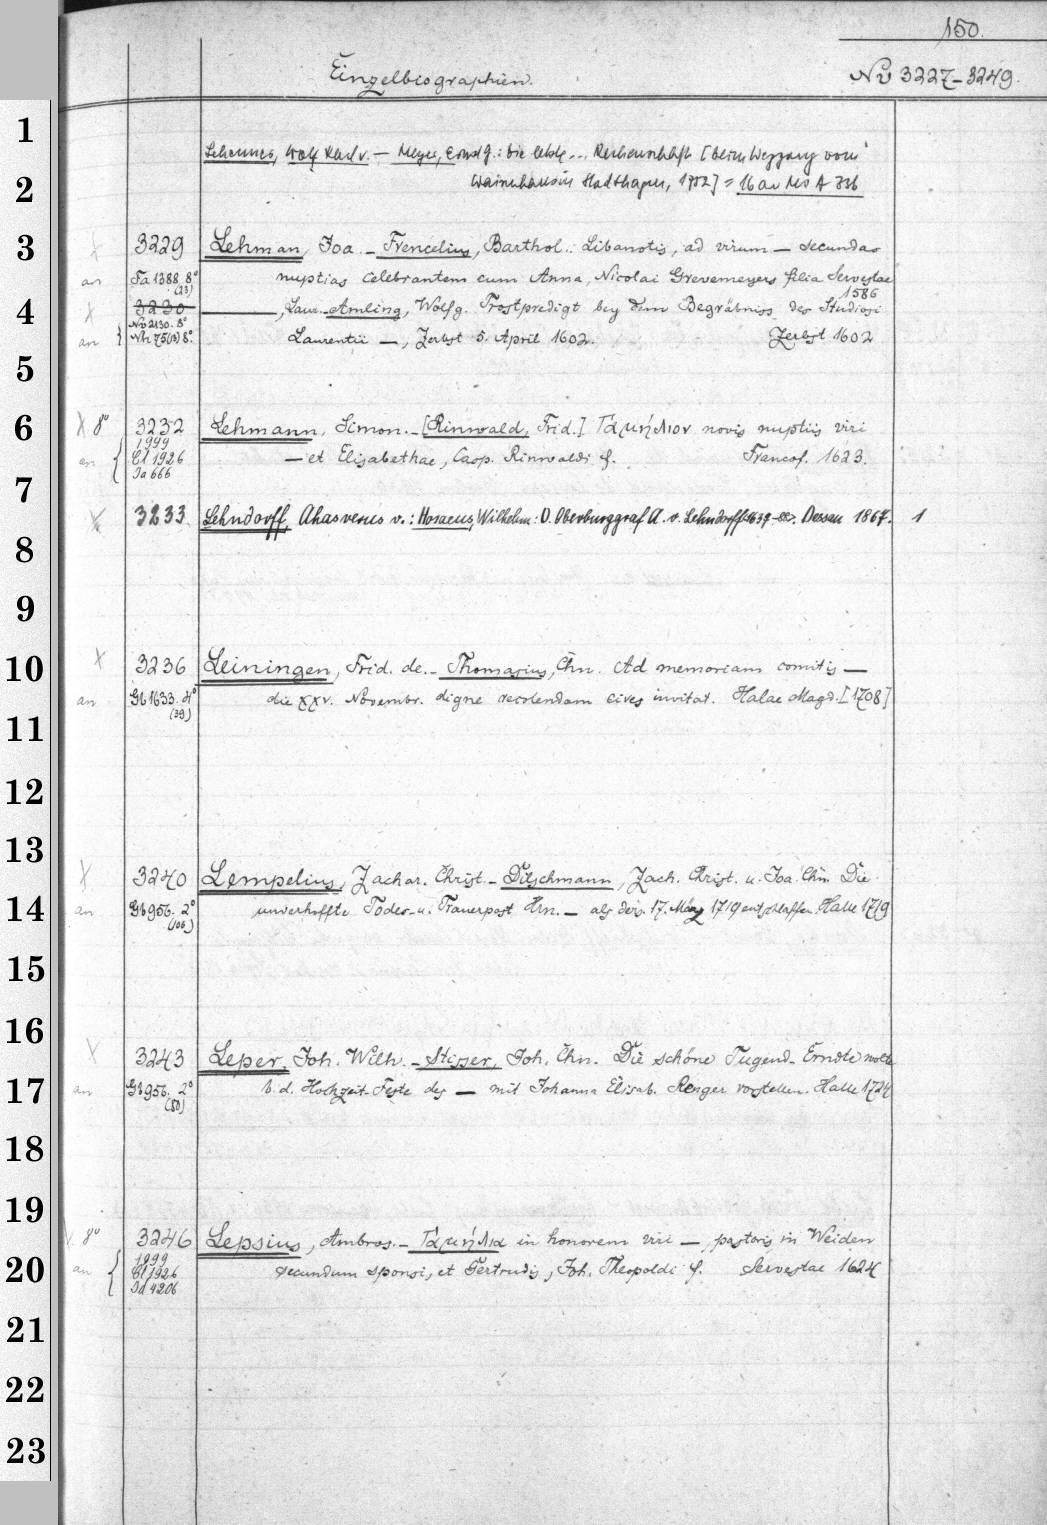 150.
Einzelbiographien.
No 3227-3249.
1
Meyer, : Die letzte ... Rechenschaft [beim Weggang vom
2
Stadthagen, 1702] =
3
3229 Lehman, Joa. - Frencelius, Barthol.: Libanotis, ad virum — secundas
an Fa 1388 8° (23) nuptias celebrantem cum Anna, Nicolai Grevemeyers filia Servestae
1586
4
3230 ———, Laur. - Amling, Wolfg. Trostpredigt bey dem Begräbniss des Studiosi
an Laurentii —, Zerbst 5. April 1602. Zerbst 1602
5
6
X 8° 3232 Lehmann, Simon. - [Rinwald, Frid.] Γαμήλιον novis nuptiis viri
1999
Cl 1926
Ja 666
— et Elisabethae, Casp. Rinwaldi f. Francof. 1623.
7
X 3233 Lehndorff, Ahasverus v.: Hosaeus, Wilhelm: D. Oberburggraf A. v. Lehndorff 1637-88. Dessau 1867. 1
8
9
10
X 3236 Leiningen, Frid. de. - Thomasius, Chn. Ad memoriam comitis —
an Gb 1633. 4° (39) die XXV. Novembr. digne recolendam cives invitat. Halae Magd. [1708]
11
12
13
X 3240 Lempelius, Zachar. Christ. - Ditschmann, Zach. Christ. u. Joa. Chn. Die
14
an Gb 956. 2° (106) unverhoffte Todes- u. Trauerpost Hrn. — als ders. 17. März 1719 entschlaffen. Halle 1719
15
16
X 3243 Leper, Joh. Wilh. - Stisser, Joh. Chn. Die schöne Tugend-Erndte wolte
17
an Gb 956. 2° (80) b. d. Hochzeit-Feste des — mit Johanna Elisab. Renger vorstellen. Halle 1724
18
19
8° 3246 Lepsius, Ambros. - Γαμήλια in honorem viri —, pastoris in Weiden
1999
20
an Cl 1926 secundum sponsi, et Gertrudis, Joh. Theopoldi f. Servestae 1624
Jd 4206
21
22
23